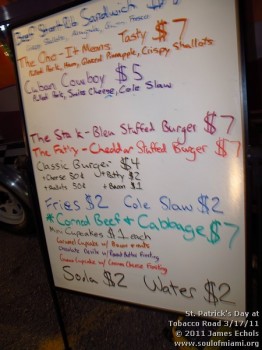 Beef Short Rib Sandwich $
The Cho-It Means Tasty $7
Pulled Pork, Ham, Glazed Pineapple, Crispy Shallots
Cuban Cowboy $5
Pulled Pork, Swiss Cheese, Cole Slaw
The Stak-Bleu Stuffed Burger $7
The Fatty-Cheddar Stuffed Burger $7
Classic Burger $4
+Cheese 50¢ +Patty $2
+Shallots 50¢ +Bacon $1
Fries $2 Cole Slaw $2
*Corned Beef & Cabbage $7
Mini Cupcakes $1 each
Caramel Cupcake w/ Bacon
Chocolate w/ Peanut Butter Frosting
Cupcake w/ Cream Cheese Frosting
Soda $2 Water $2
St. Patrick's Day at
Tobacco Road 3/17/11
© 2011 James Echols
www.soulofmiami.org